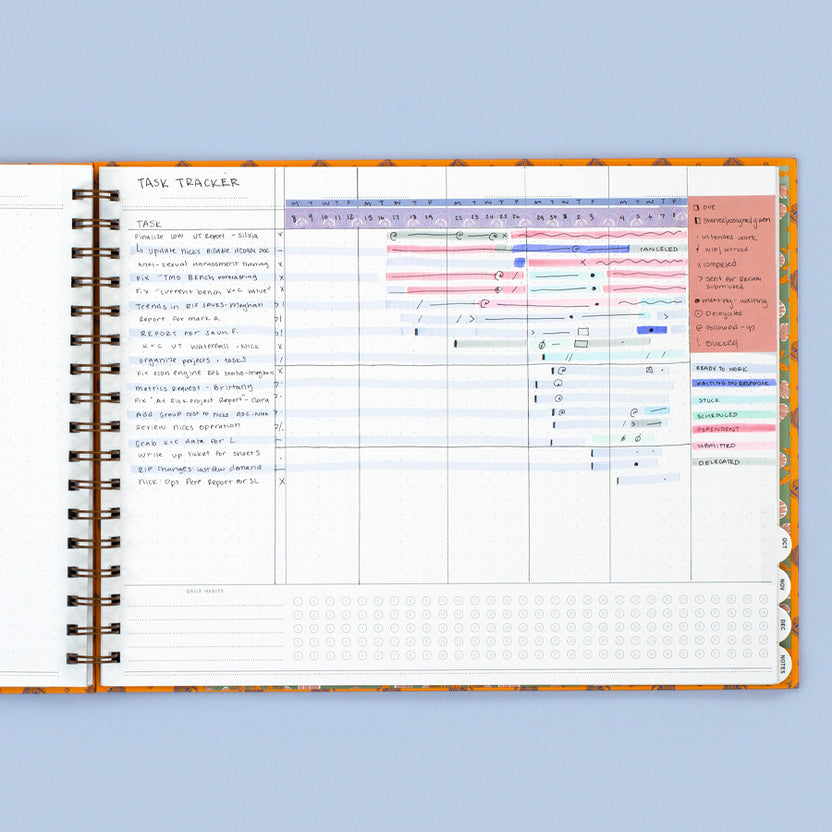 TASK TRACKER
M T W T F M T W T F M T W T F M T W T F M T W T F
8 9 10 11 12 15 16 17 18 19 22 23 24 25 26 29 30 1 2 3 4 5 6 7 8
TASK
Finalize Low UT Report - Silvia
↳ Update Nicks Disable HC
CANCELED
Anti-sexual harassment training
Fix "TMO Bench Forecasting
Fix "current bench K+C value"
Trends in RIF saves - Meghan
Report for Mark A.
REPORT FOR Saun F.
K+C UT Waterfall - Nick
organize projects + tasks
Fix econ engine status - meghan
metrics Request - Brittany
Fix "At Risk Project Report" - Ciara
Add Group cost to nicks doc - Nick
Review nicks operation
Grab K+C data for L
Write up ticket for sheets
RIF changes: last Raw demand
Nick: Ops Perf Report for SL
DUE
Started/assigned/given
· intended work
/ WIP/worked
x completed
> sent for Review
submitted
● meeting - waiting
Delegated
@ Followed-up
! Blocked
READY TO WORK
WAITING ON RESPONSE
STUCK
SCHEDULED
DEPENDENT
SUBMITTED
DELEGATED
DAILY HABITS
OCT
NOV
DEC
NOTES